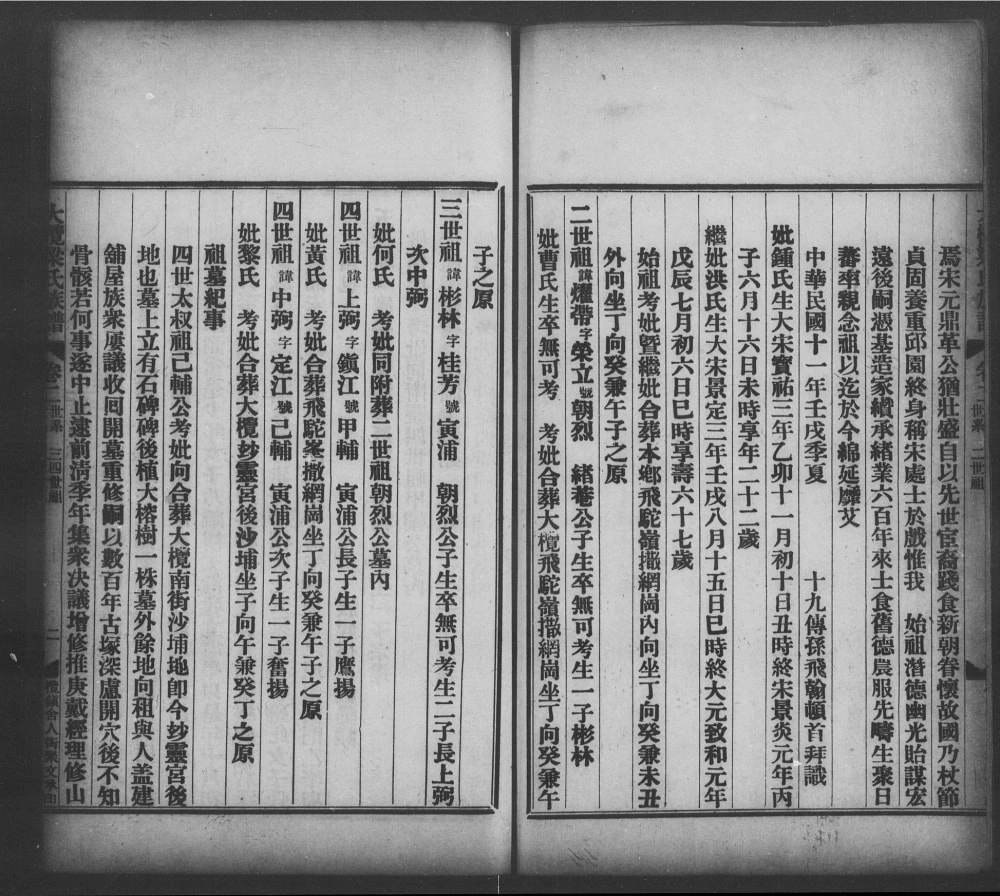 焉宋元鼎革公猶壯盛自以先世宦裔踐食新朝眷懷故國乃杖節
貞固養重邱園終身稱宋處士於戲惟我　始祖潛德幽光貽謀宏
遠後嗣憑基造家纘承緒業六百年來士食舊德農服先疇生聚日
蕃率親念祖以迄於今綿延靡艾
中華民國十一年壬戌季夏　　十九傳孫飛翰頓首拜識
妣鍾氏生大宋寳祐三年乙卯十一月初十日丑時終宋景炎元年丙
子六月十六日未時享年二十二歲
繼妣洪氏生大宋景定三年壬戌八月十五日巳時終大元致和元年
戊辰七月初六日巳時享壽六十七歲
始祖考妣暨繼妣合葬本鄉飛駝嶺撒網崗內向坐丁向癸兼未丑
外向坐丁向癸兼午子之原
二世祖諱燿帶字榮立號朝烈　緒菴公子生卒無可考生一子彬林
妣曹氏生卒無可考　考妣合葬大欖飛駝嶺撒網崗坐丁向癸兼午
子之原
三世祖諱彬林字桂芳號寅浦　朝烈公子生卒無可考生二子長上弼
次中弼
妣何氏　考妣同附葬二世祖朝烈公墓內
四世祖諱上弼字鎭江號甲輔　寅浦公長子生一子鷹揚
妣黃氏　考妣合葬飛駝峯撒網崗坐丁向癸兼午子之原
四世祖諱中弼字定江號己輔　寅浦公次子生一子奮揚
妣黎氏　考妣合葬大欖玅靈宮後沙埔坐子向午兼癸丁之原
祖墓紀事
四世太叔祖己輔公考妣向合葬大欖南街沙埔地卽今玅靈宮後
地也墓上立有石碑碑後植大榕樹一株墓外餘地向租與人盖建
舖屋族衆屢議收囘開墓重修嗣以數百年古塚深慮開穴後不知
骨骸若何事遂中止逮前淸季年集衆決議增修推庚戴經理修山
大欖梁氏族譜　卷二　世系　三四世祖　二